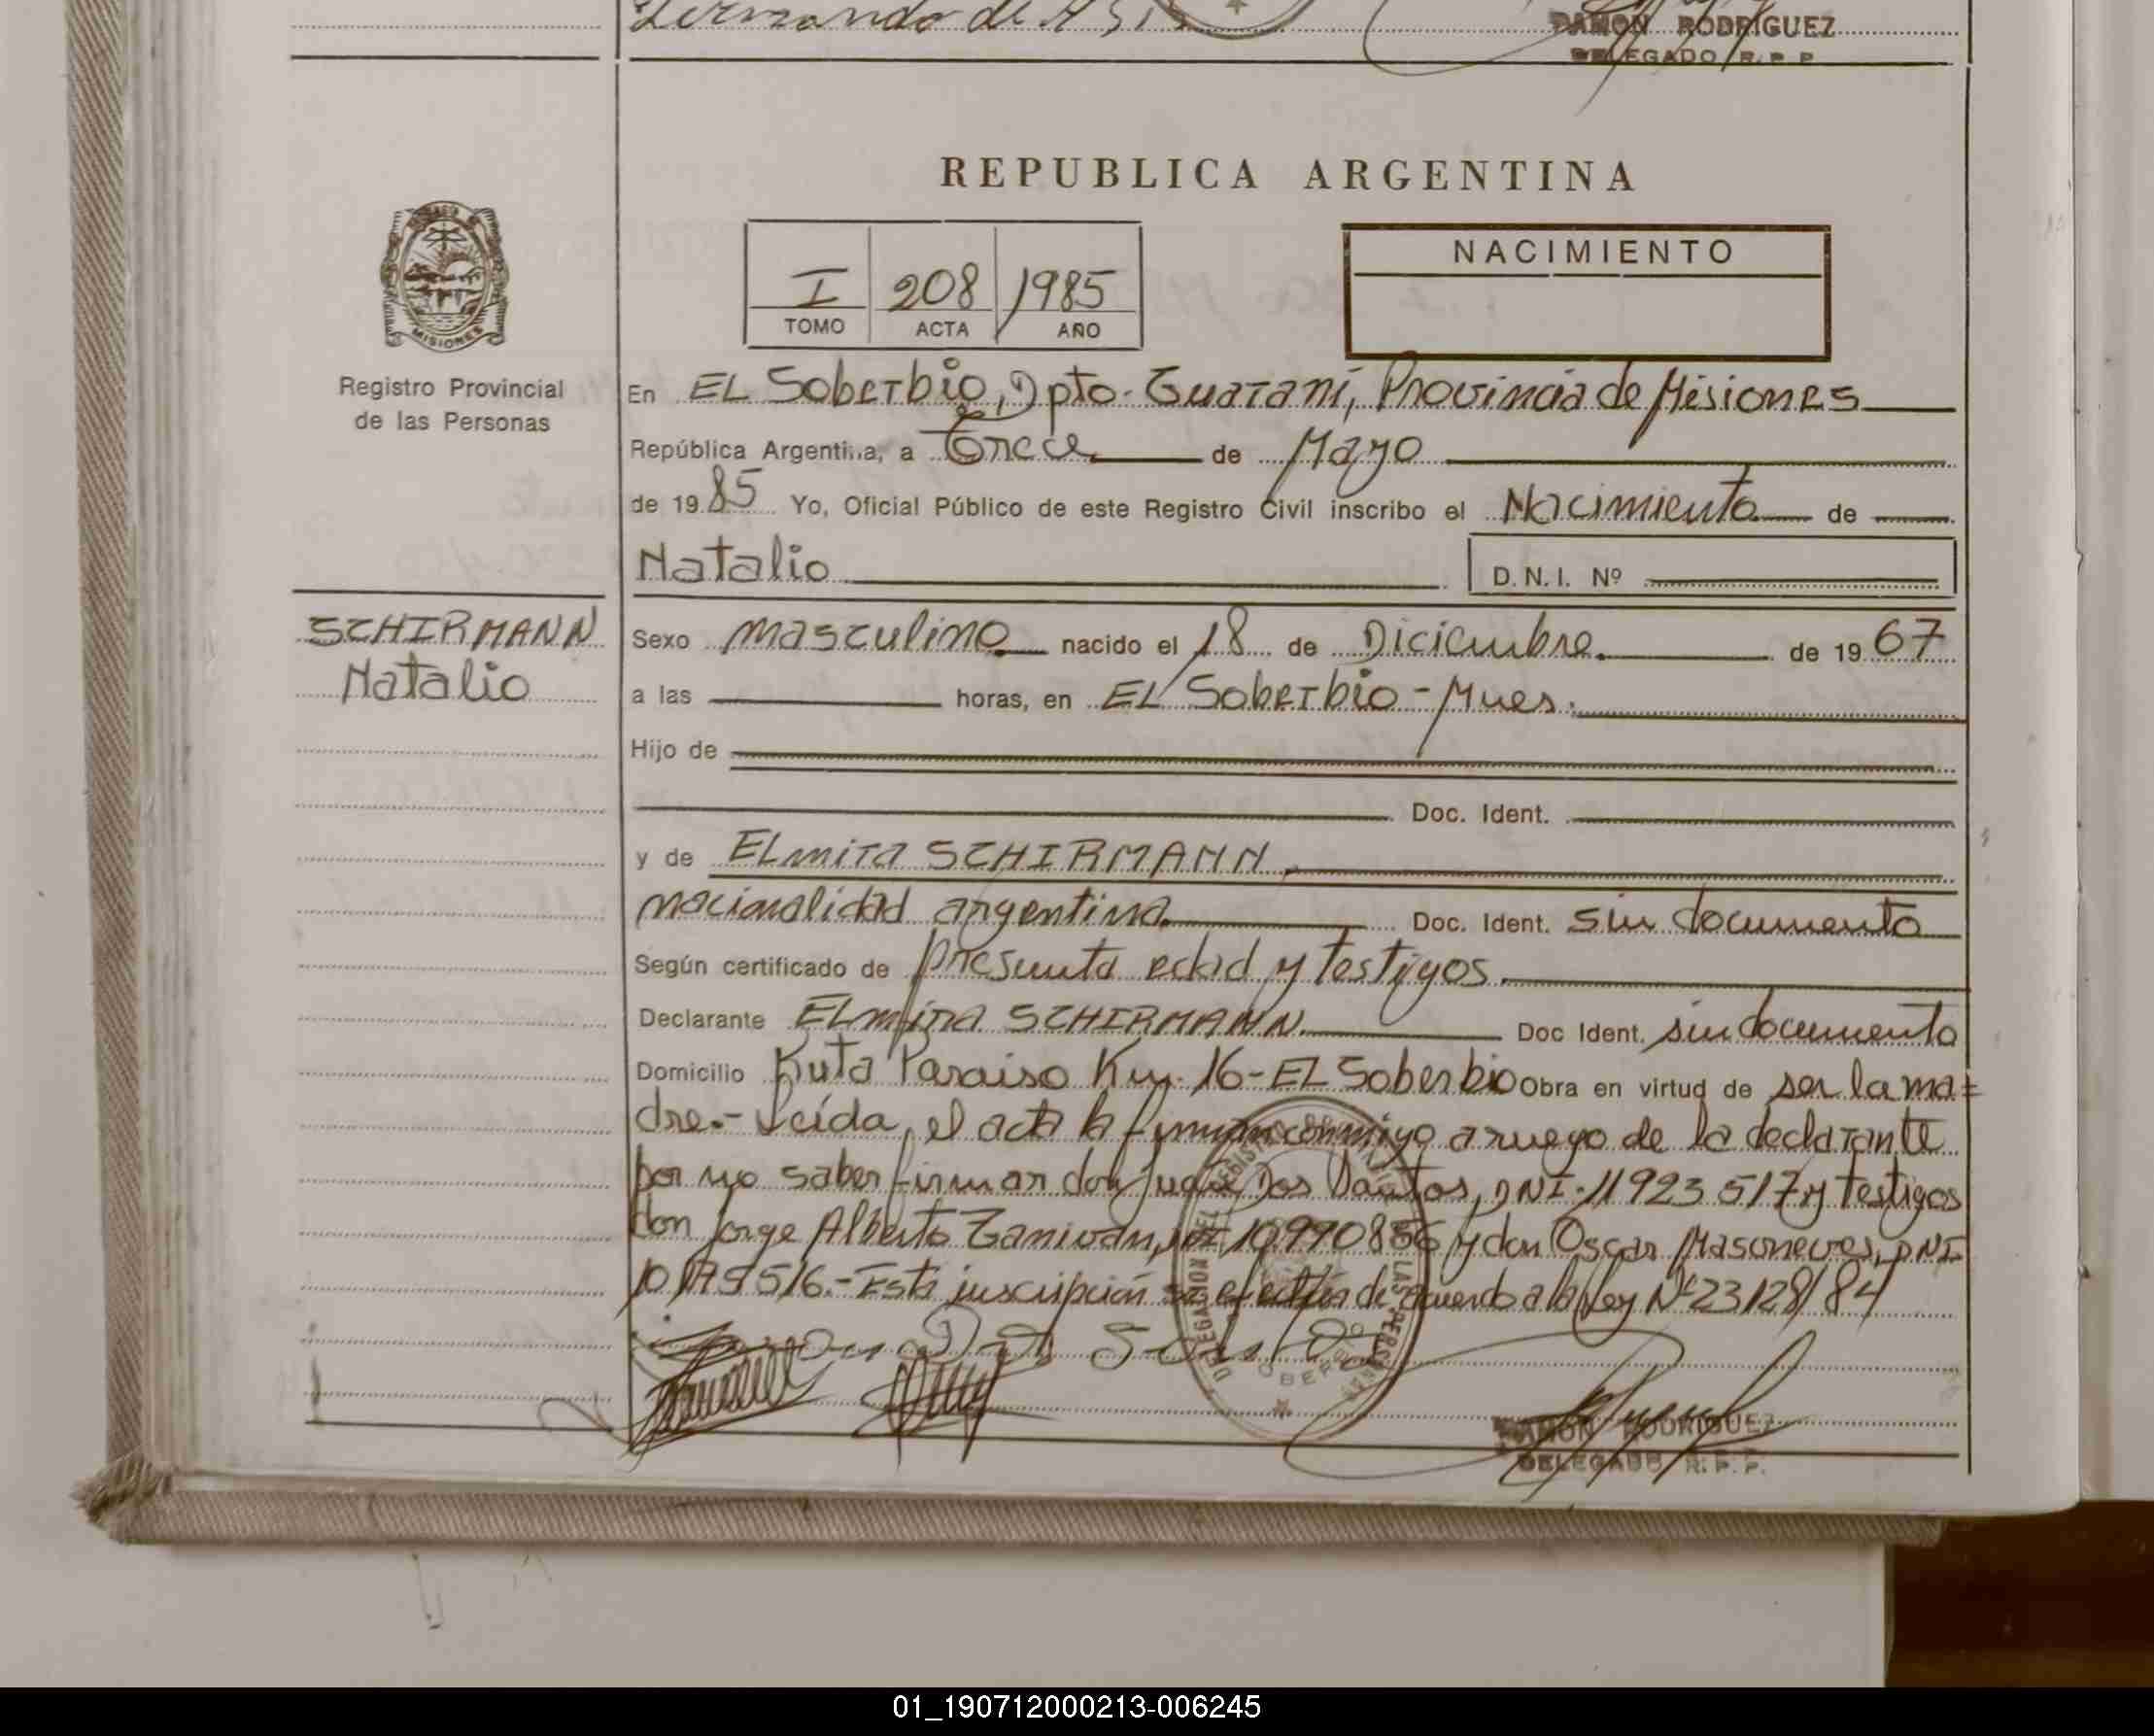 Fernando de ASis
RAMON RODRIGUEZ
DELEGADO R. P. P.
REPUBLICA ARGENTINA
NACIMIENTO
I 208 1985
TOMO ACTA AÑO
MISIONES
Registro Provincial
de las Personas
En EL Soberbio, Dpto. Guaraní, Provincia de Misiones
República Argentina, a Trece de Mayo
de 1985 Yo, Oficial Público de este Registro Civil inscribo el Nacimiento de
Natalio D.N.I. Nº
SCHIRMANN
Natalio
Sexo masculino nacido el 18 de Diciembre de 1967
a las horas, en EL Soberbio - Mnes.
Hijo de
Doc. Ident.
y de ELmira SCHIRMANN
nacionalidad argentina. Doc. Ident. sin documento
Según certificado de presunta edad y testigos.
Declarante ELmira SCHIRMANN. Doc Ident. sin documento
Domicilio Ruta Paraiso Km. 16 - EL Soberbio Obra en virtud de ser la ma=
dre.- Leída, el acta la firman conmigo a ruego de la declarante
por no saber firmar don Juan Dos Santos, DNI. 11923517 y testigos
don Jorge Alberto Zanivan, DNI 10.990856 y don Oscar DNI
10179516.- Esta inscripción se efectúa de acuerdo a la Ley Nº 23128/84
Juan Dos Santos
DELEGACION DEL REGISTRO PROVINCIAL DE LAS PERSONAS
SOBERBIO
RAMON RODRIGUEZ
DELEGADO R. P. P.
01_190712000213-006245